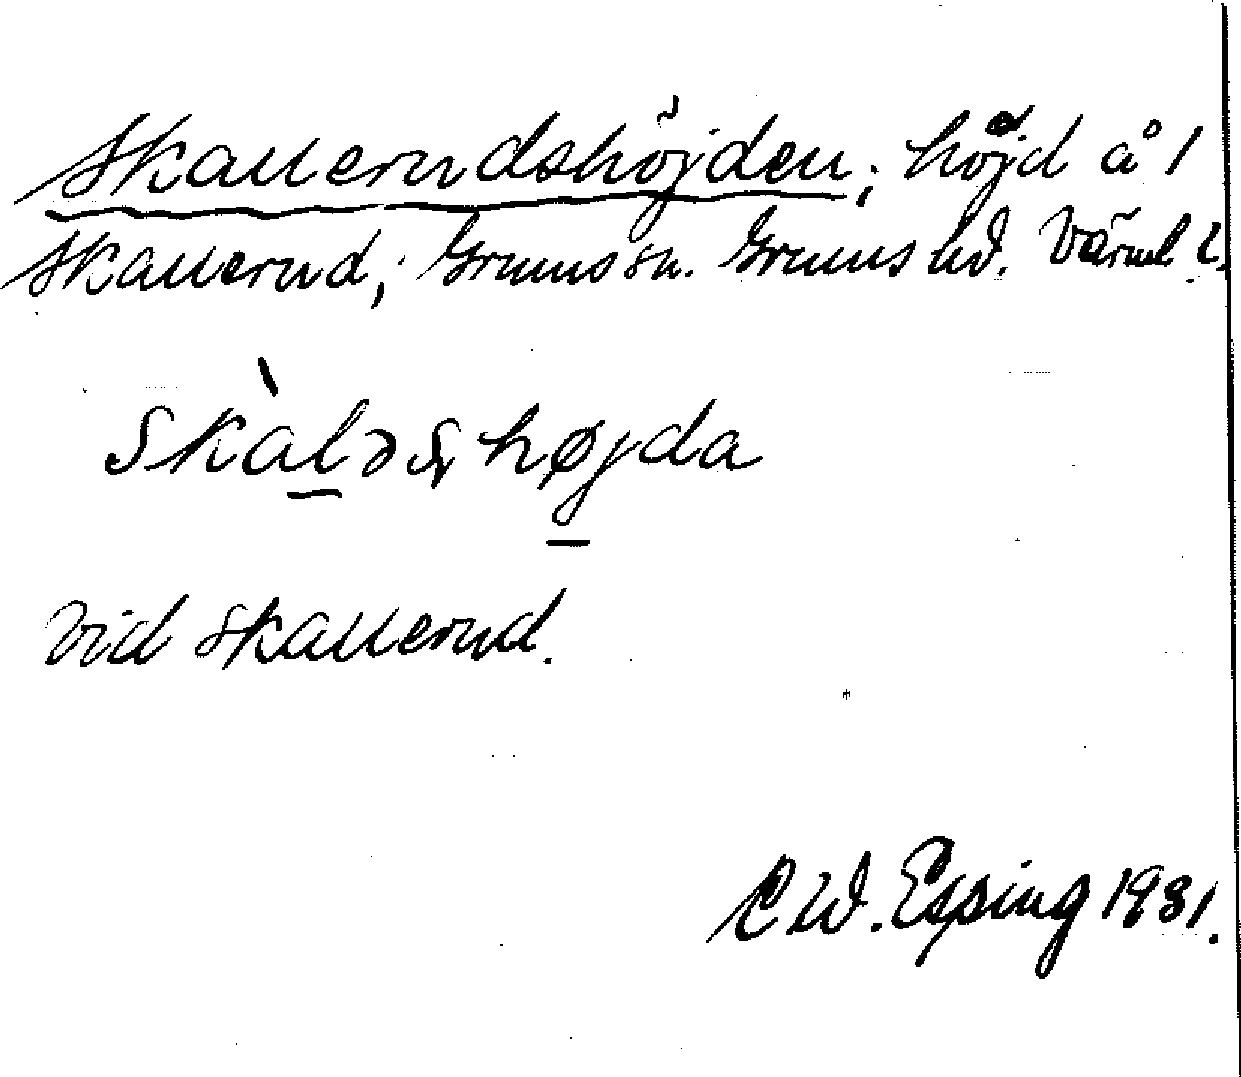 Skallerudshöjden; höjd å 1
Skallerud; Grums sn. Grums hd. Värml l.
Skàləʂhøjda
Vid Skallerud.
C W. Esping 1931.